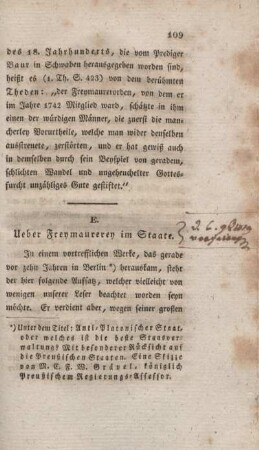 109
des 18. Jahrhunderts, die vom Prediger
Baur in Schwaben herausgegeben worden sind,
heißt es (1. Th. S. 423) von dem berühmten
Theden: „der Freymaurerorden, von dem er
im Jahre 1742 Mitglied ward, schätzte in ihm
einen der würdigen Männer, die zuerst die man-
cherley Vorurtheile, welche man wider denselben
ausstreuete, zerstörten, und er hat gewiß auch
in demselben durch sein Beyspiel von geradem,
schlichten Wandel und ungeheuchelter Gottes-
furcht unzähliges Gute gestiftet.“
E.
Ueber Freymaurerey im Staate.
In einem vortrefflichen Werke, das gerade
vor zehn Jahren in Berlin *) herauskam, steht
der hier folgende Aufsatz, welcher vielleicht von
wenigen unserer Leser beachtet worden seyn
möchte. Er verdient aber, wegen seiner großen
*) Unter dem Titel: Anti-Platonischer Staat,
oder welches ist die beste Staatsver-
waltung? Mit besonderer Rücksicht auf
die Preußischen Staaten. Eine Skizze
von M. C. F. W. Grävel, königlich
Preußischem Regierungs-Assessor.